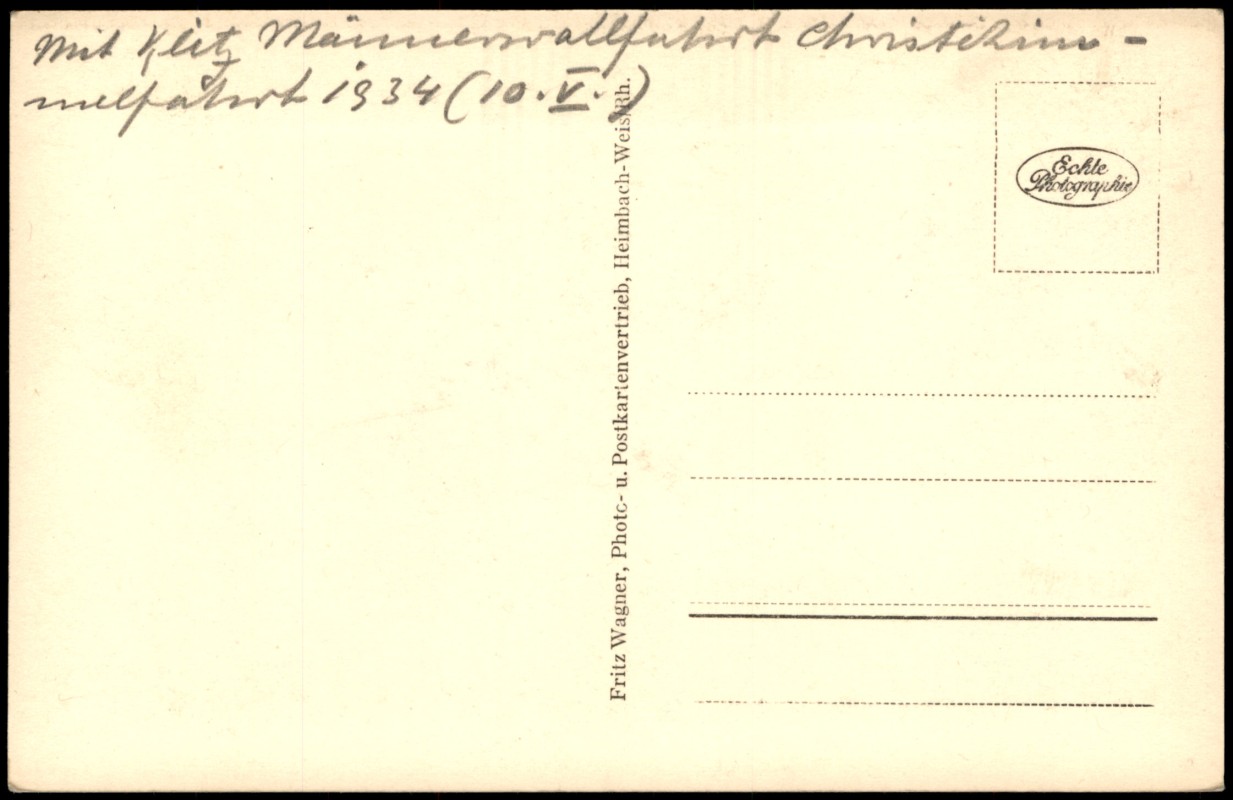 Mit Kleitz Männerwallfahrt Christihim-
melfahrt 1934 (10. V.)
Echte
Photographie
Fritz Wagner, Photo- u. Postkartenvertrieb, Heimbach-Weis/Rh.